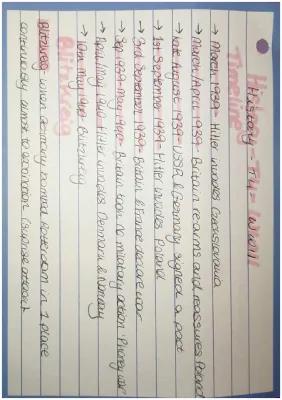 History - T4 - WWII
Timeline
→ March 1939 - Hitler invades Czechoslovakia
→ March/April 1939 - Britain rearms and reassures Poland
→ Late August 1939 - USSR & Germany signed a pact
→ 1st September 1939 - Hitler invades Poland
→ 3rd September 1939 - Britain & France declare war
→ Sep 1939-May 1940 - Britain took no military action - Phoney war
→ April/May 1940 - Hitler invades Denmark & Norway
→ 10th May 1940 - Blitzkrieg
Blitzkrieg
Blitzkrieg - when Germany bombed Rotterdam in 1 place
continuously almost to extinction (surprise attack)